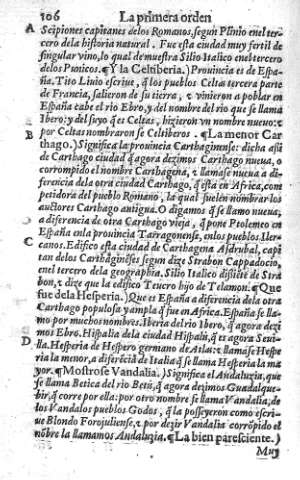 106 La primera orden
A Scipiones capitanes delos Romanos, segun Plinio enel ter
cero dela historia natural. Fue esta ciudad muy fertil de
singular vino, lo qual demuestra Silio Italico enel tercero
delos Punicos. ¶Y la Celtiberia.) Prouincia es de Espa-
ña. Tito Liuio escriue, q̃ los pueblos Celtas tercera parte
de Francia, salieron de su tierra, ⁊ vinieron a poblar en
España cabe el rio Ebro, y del nombre del rio que se llama
Ibero: y del suyo q̃ es Celtas, hizieron vn nombre nueuo: ⁊
B por Celtas nombraron se Celtiberos. ¶La menor Car
thago.) Significa la prouincia Carthaginense: dicha assi
de Carthago ciudad q̃ agora dezimos Carthago nueua, o
corrompido el nombre Carthagena, ⁊ llamase nueua a di-
ferencia dela otra ciudad Carthago, q̃ esta en Africa, com
petidora del pueblo Romano, la qual suelen nombrar los
auctores Carthago antigua. O digamos q̃ se llamo nueua,
a diferencia de otra Carthago vieja, q̃ pone Ptolomeo en
España enla prouincia Tarragonense, enlos pueblos Iler-
C caones. Edifico esta ciudad de Carthagena Asdrubal, capi
tan delos Carthaginẽses segun dize Strabon Cappadocio,
enel tercero dela geographia. Silio Italico dissiẽte de Stra
bon, ⁊ dize que la edifico Teucro hijo de Telamon. ¶Que
fue dela Hesperia.) Que es España a diferencia dela otra
Carthago populosa y ampla q̃ fue en Africa. España se lla-
mo por muchos nombres. Iberia del rio Ibero, q̃ agora dezi
mos Ebro. Hispalia dela ciudad Hispali, q̃ es agora Seui-
D lla. Hesperia de Hespero germano de Atlas: ⁊ llamase Hespe
ria la menor, a diferẽcia de Italia q̃ se llama Hesperia la ma
yor. ¶Mostrose Vandalia.) Significa el Andaluzia, que
se llama Betica del rio Betis, q̃ agora dezimos Guadalque-
bir, q̃ corre por ella: por otro nombre se llama Vandalia, de
los Vandalos pueblos Godos, q̃ la posseyeron como escri-
ue Blondo Forojuliense, ⁊ por dezir Vandalia corrõpido el
nõbre la llamamos Andaluzia. ¶La bien paresciente.)
Muy